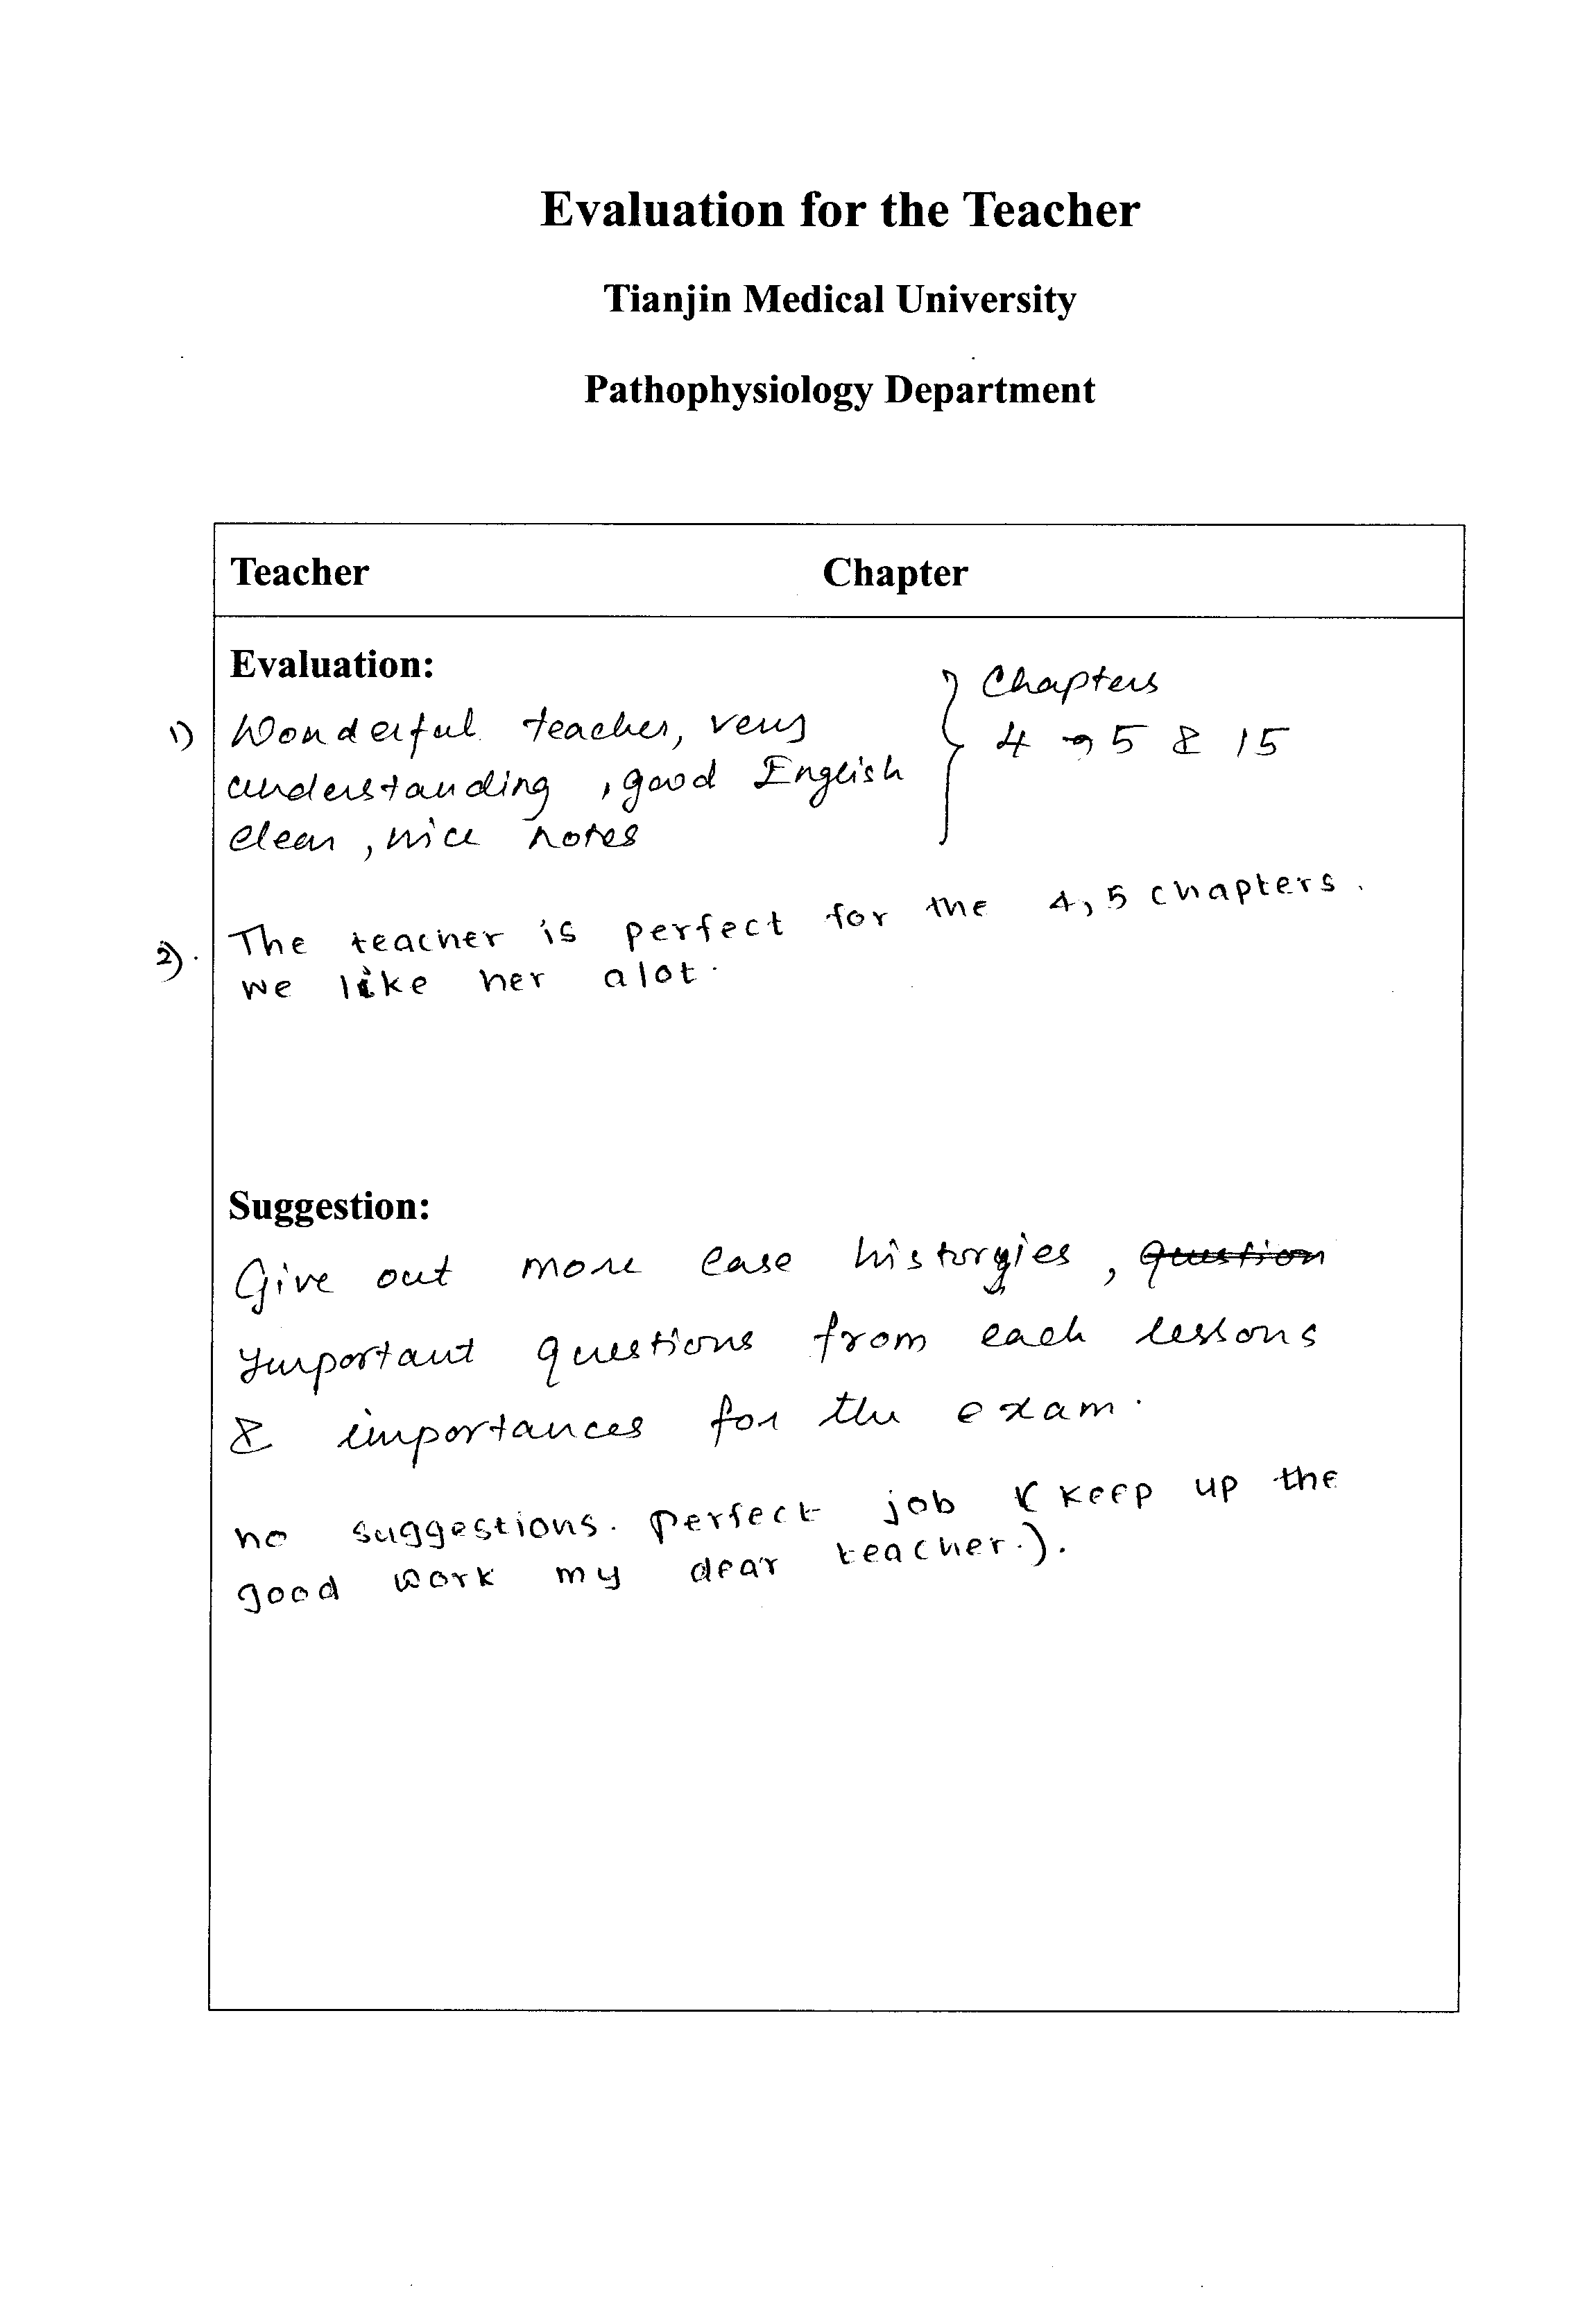 Evaluation for the Teacher
Tianjin Medical University
Pathophysiology Department
Teacher Chapter
Evaluation:
1) Wonderful teacher, very
understanding, good English
clear, nice notes
} Chapters
4 → 5 & 15
2). The teacher is perfect for the 4, 5 chapters.
we like her alot.
Suggestion:
Give out more case histories, question
Important questions from each lessons
& importances for the exam.
no suggestions. perfect job (keep up the
good work my dear teacher.).